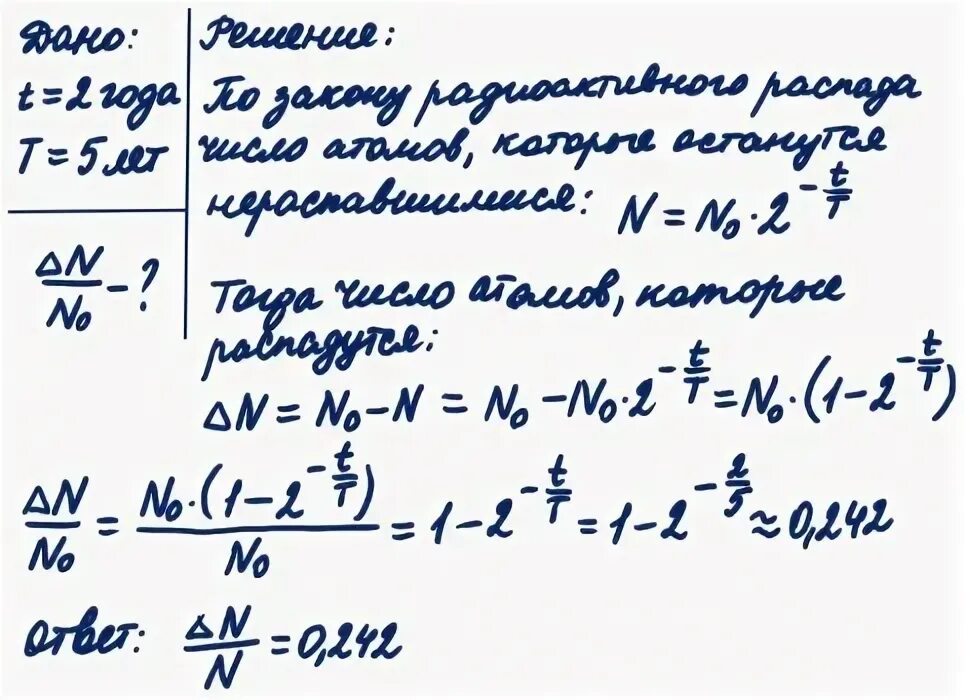 Дано:
t = 2 года
T = 5 лет
ΔN/N₀ - ?
Решение:
По закону радиоактивного распада
число атомов, которые останутся
нераспавшимися: N = N₀·2^(-t/T)
Тогда число атомов, которые
распадутся:
ΔN = N₀ - N = N₀ - N₀·2^(-t/T) = N₀·(1 - 2^(-t/T))
ΔN/N₀ = N₀·(1 - 2^(-t/T))/N₀ = 1 - 2^(-t/T) = 1 - 2^(-2/5) ≈ 0,242
Ответ: ΔN/N = 0,242